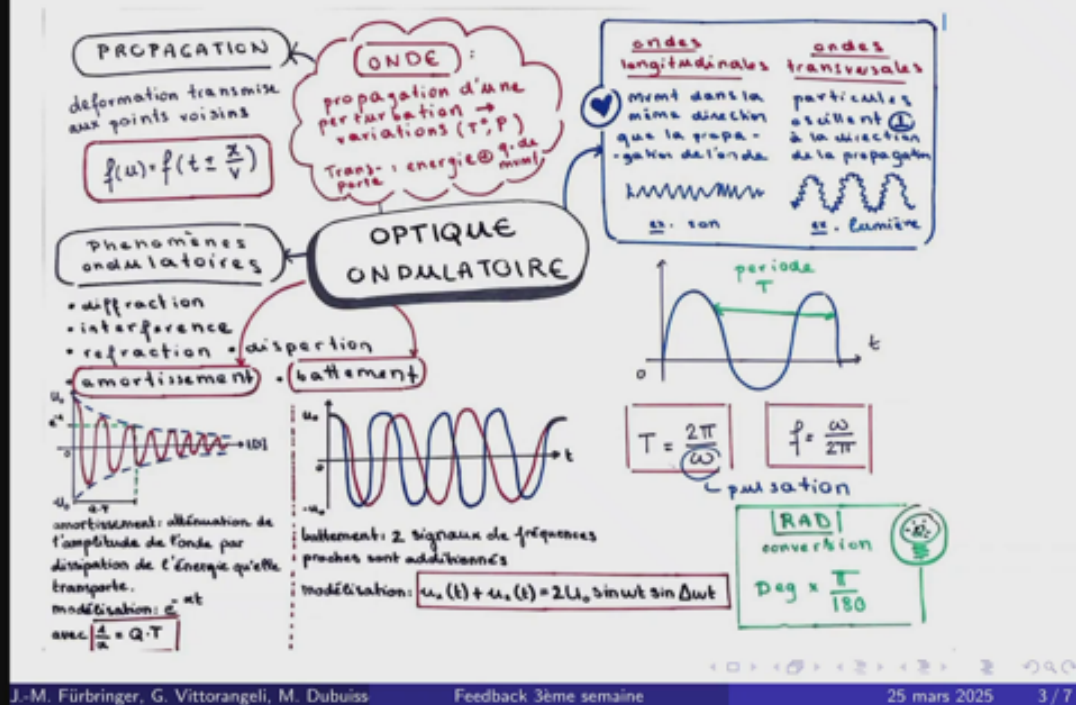 PROPAGATION
déformation transmise
aux points voisins
f(u) = f(t ± x/v)
ONDE :
propagation d'une
perturbation →
variations (T°, P)
Trans- : energie ⊕ q. de
porte mvmt
ondes
longitudinales
mvmt dans la
même direction
que la propa-
-gation de l'onde
ex. son
ondes
transversales
particules
oscillent ⊥
à la direction
de la propagation
ex. lumière
OPTIQUE
ONDULATOIRE
Phenomènes
ondulatoires
• diffraction
• interférence
• refraction • dispertion
• amortissement • battement
periode
T
t
0
T = 2π/ω
f = ω/2π
pulsation
RAD
conversion
Deg × π/180
U₀
0
-U₀
Q·T
amortissement: atténuation de
l'amplitude de l'onde par
dissipation de l'énergie qu'elle
transporte.
modélisation: e^-αt
avec 1/α = Q·T
U₀
0
-U₀
t
battement: 2 signaux de fréquences
proches sont additionnés
modélisation: u₁(t) + u₂(t) = 2U₀ sin ωt sin Δωt
J.-M. Fürbringer, G. Vittorangeli, M. Dubuiss
Feedback 3ème semaine
25 mars 2025
3 / 7